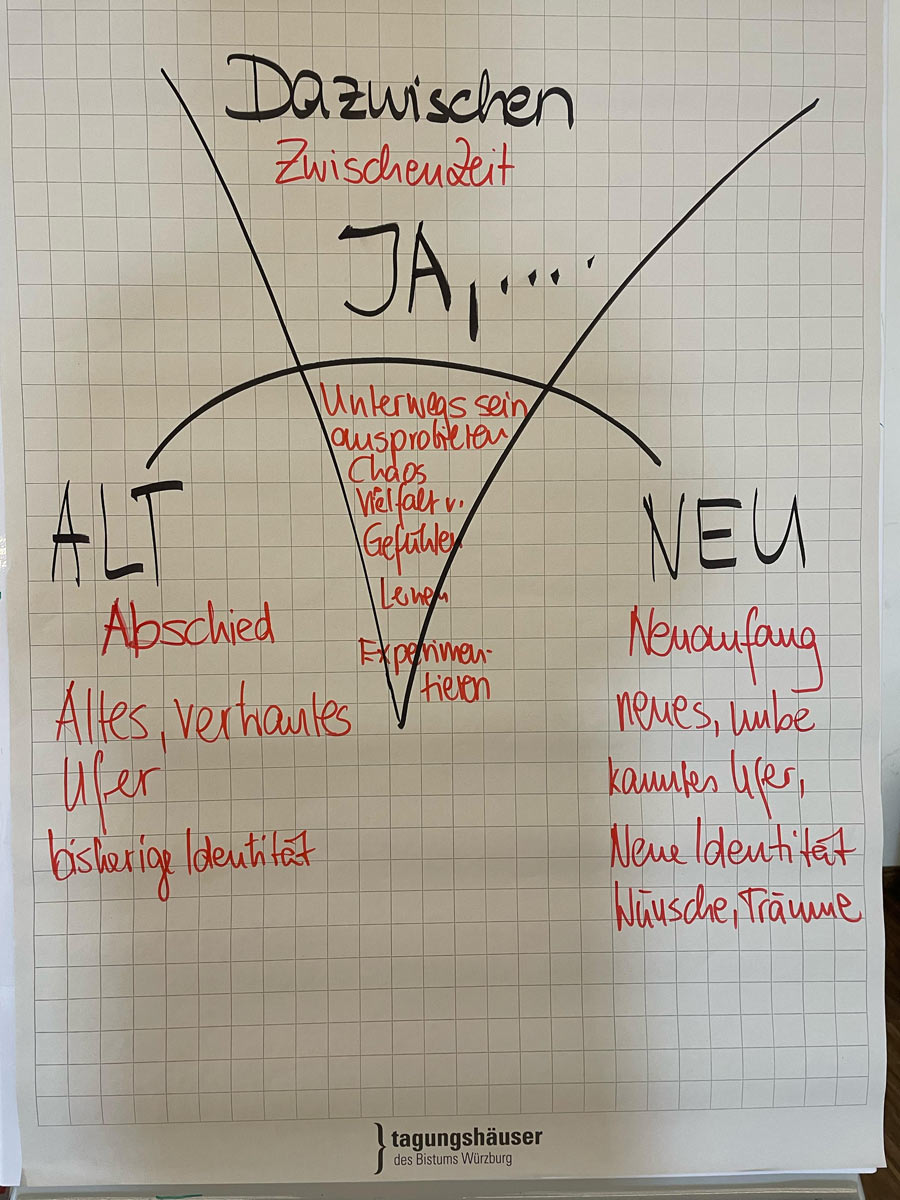 Dazwischen
Zwischenzeit
JA, . . . .
Unterwegs sein
ausprobieren
Chaos
Vielfalt v.
Gefühlen
Lernen
Experimen-
tieren
ALT
Abschied
Altes, vertrautes
Ufer
bisherige Identität
NEU
Neuanfang
neues, unbe
kanntes Ufer,
Neue Identität
Wünsche, Träume
tagungshäuser
des Bistums Würzburg